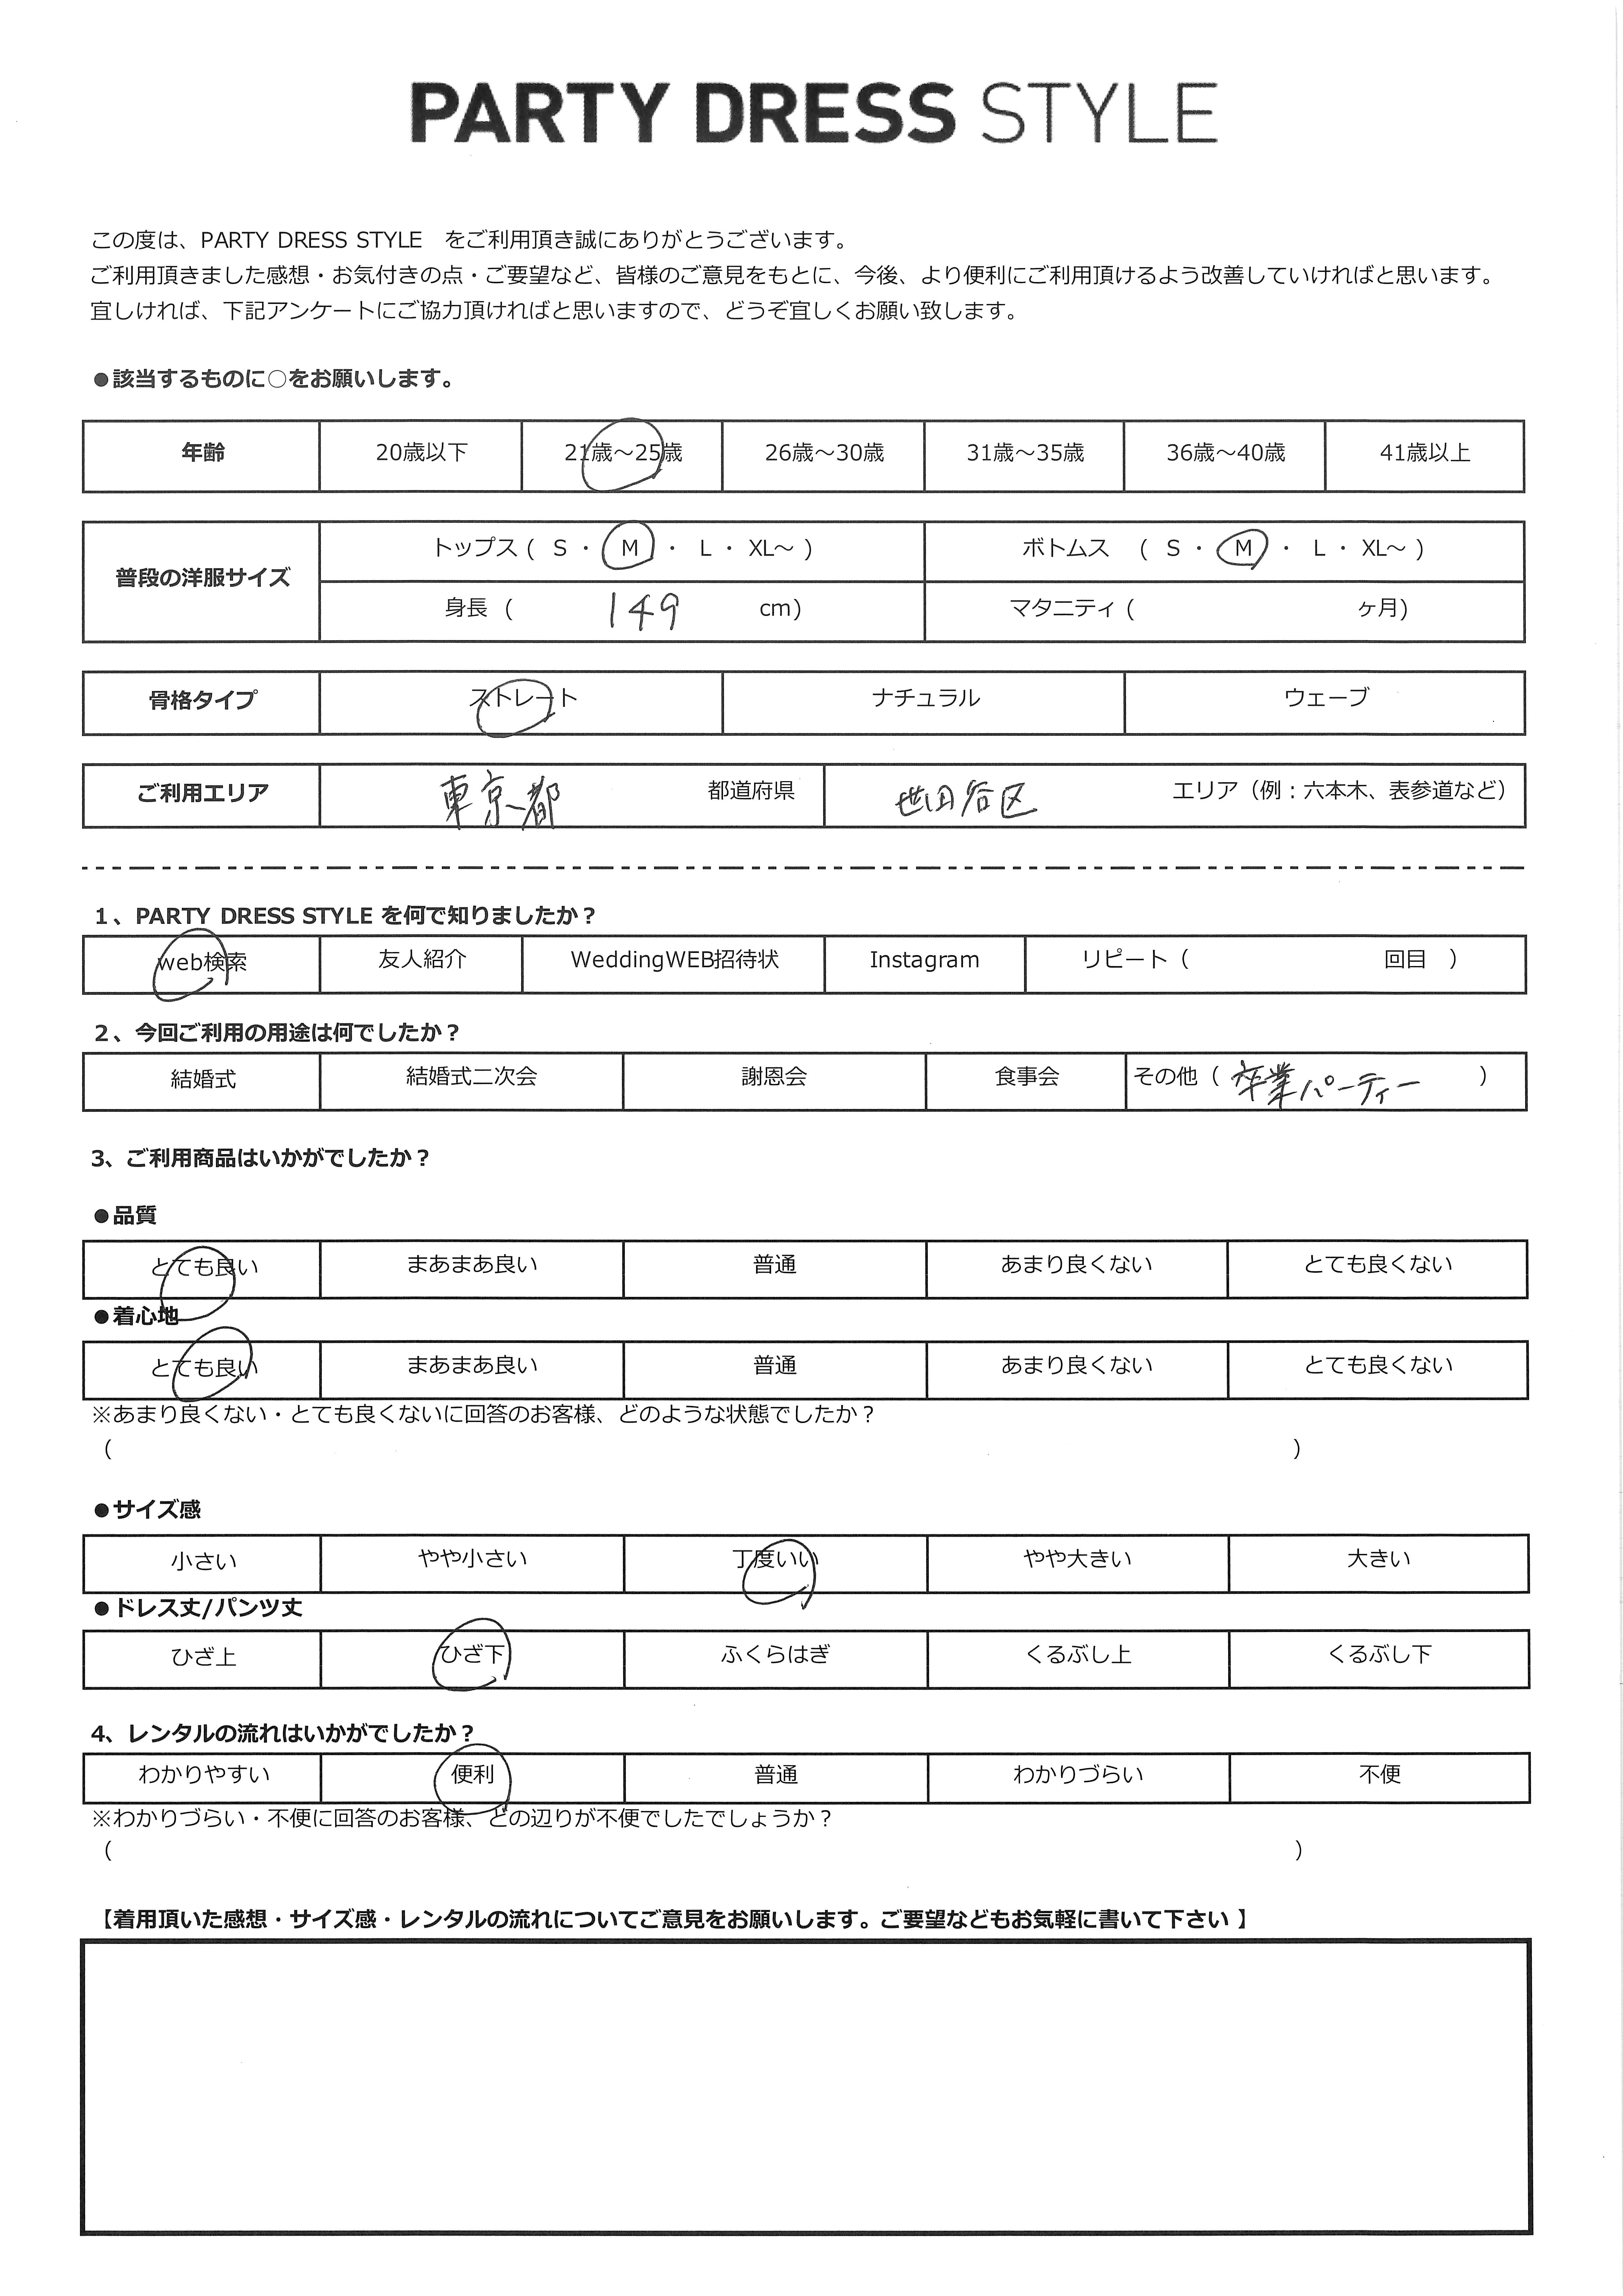 PARTY DRESS STYLE
この度は、PARTY DRESS STYLE　をご利用頂き誠にありがとうございます。
ご利用頂きました感想・お気付きの点・ご要望など、皆様のご意見をもとに、今後、より便利にご利用頂けるよう改善していければと思います。
宜しければ、下記アンケートにご協力頂ければと思いますので、どうぞ宜しくお願い致します。
●該当するものに○をお願いします。
年齢 20歳以下 21歳～25歳 26歳～30歳 31歳～35歳 36歳～40歳 41歳以上
普段の洋服サイズ
トップス ( S ・ M ・ L ・ XL～ ) ボトムス ( S ・ M ・ L ・ XL～ )
身長 ( 149 cm) マタニティ ( ヶ月)
骨格タイプ ストレート ナチュラル ウェーブ
ご利用エリア 東京都 都道府県 世田谷区 エリア（例：六本木、表参道など）
1、PARTY DRESS STYLE を何で知りましたか？
web検索 友人紹介 WeddingWEB招待状 Instagram リピート（ 回目 ）
2、今回ご利用の用途は何でしたか？
結婚式 結婚式二次会 謝恩会 食事会 その他（ 卒業パーティー ）
3、ご利用商品はいかがでしたか？
●品質
とても良い まあまあ良い 普通 あまり良くない とても良くない
●着心地
とても良い まあまあ良い 普通 あまり良くない とても良くない
※あまり良くない・とても良くないに回答のお客様、どのような状態でしたか？
（ ）
●サイズ感
小さい やや小さい 丁度いい やや大きい 大きい
●ドレス丈/パンツ丈
ひざ上 ひざ下 ふくらはぎ くるぶし上 くるぶし下
4、レンタルの流れはいかがでしたか？
わかりやすい 便利 普通 わかりづらい 不便
※わかりづらい・不便に回答のお客様、どの辺りが不便でしたでしょうか？
（ ）
【着用頂いた感想・サイズ感・レンタルの流れについてご意見をお願いします。ご要望などもお気軽に書いて下さい 】